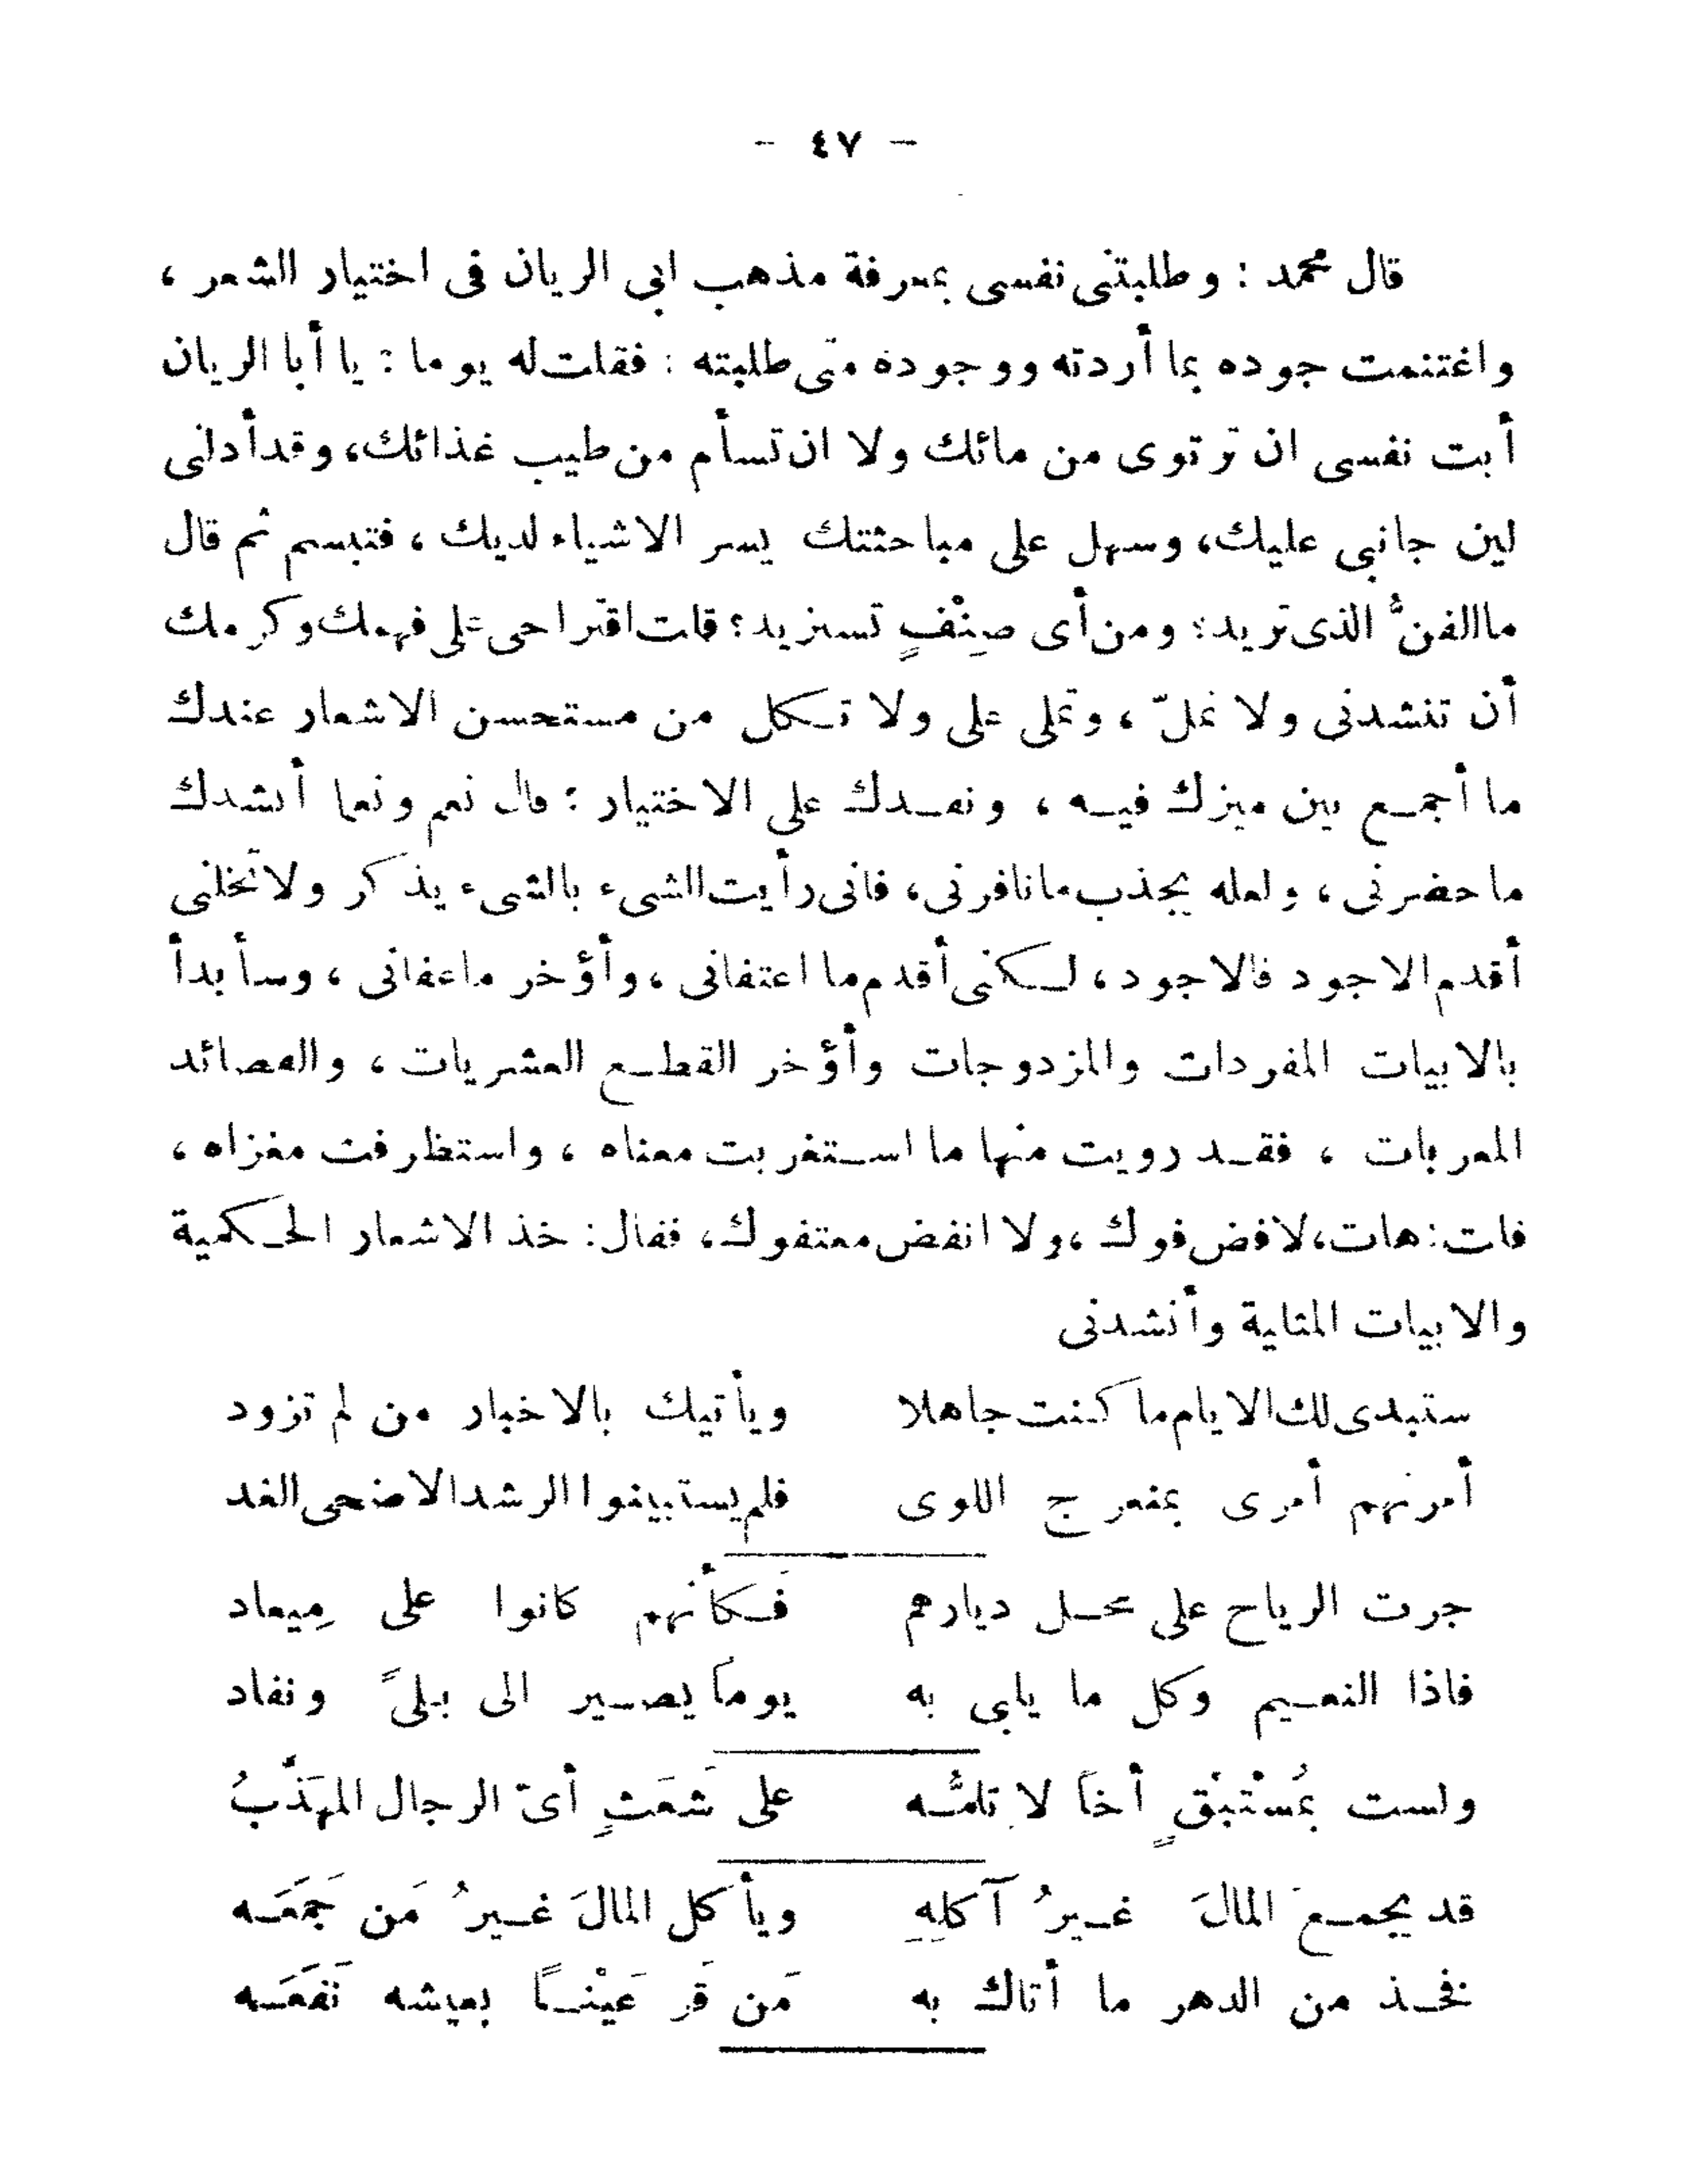 - ٤٧ -
قال محمد : وطلبتنى نفسى بمعرفة مذهب ابى الريان فى اختيار الشعر ،
واغتنمت جوده بما أردته ووجوده متى طلبته : فقلت له يوما : يا أبا الريان
أبت نفسى ان ترتوى من مائك ولا ان تسأم من طيب غذائك، وقد أدلنى
لين جانبى عليك، وسهل على مباحثتك يسر الاشياء لديك ، فتبسم ثم قال
ما الفنُّ الذى تريد؛ ومن أى صِنْفٍ تستزيد؟ قلت اقتراحى على فهمك وكرمك
أن تنشدنى ولا تملّ ، وتملى على ولا تكل من مستحسن الاشعار عندك
ما أجمع بين ميزك فيه ، ونقدك على الاختيار : قال نعم ونعما أنشدك
ما حضرنى ، ولعله يجذب ما نافرنى، فانى رأيت الشىء بالشىء يذكر ولا تخلنى
أقدم الاجود فالاجود، لكنى أقدم ما اعتفانى ، وأؤخر ماعفانى ، وسأبدأ
بالابيات المفردات والمزدوجات وأؤخر القطع العشريات ، والقصائد
المعربات ، فقد رويت منها ما استغربت معناه ، واستظرفت مغزاه ،
قلت: هات، لافض فوك ، ولا انفض معتفوك، فقال: خذ الاشعار الحكمية
والابيات المثلية وأنشدنى
ستبدى لك الايام ما كنت جاهلا ويأتيك بالاخبار من لم تزود
أمرتهم أمرى بمنعرج اللوى فلم يستبينوا الرشد الا ضحى الغد
جرت الرياح على محل ديارهم فكأنهم كانوا على مِيعاد
فاذا النعيم وكل ما يلهى به يوماً يصير الى بلىً ونفاد
ولست بمُسْتَبْقٍ أخاً لا تلمُّه على شَعَثٍ أىّ الرجال المهَذَّبُ
قد يجمع المالَ غيرُ آكلهِ ويأكل المالَ غيرُ مَن جَمَعَه
فخذ من الدهر ما أتاك به مَن قَر عَيْنًا بعيشه نَفَعَه